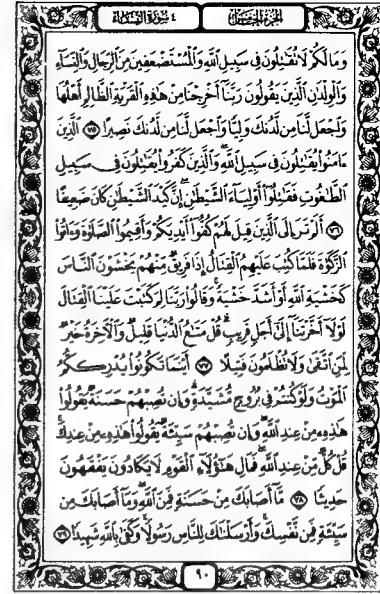 الجزء الخامس
٤ سورة النساء
وَمَا لَكُمْ لَا تُقَٰتِلُونَ فِى سَبِيلِ ٱللَّهِ وَٱلْمُسْتَضْعَفِينَ مِنَ ٱلرِّجَالِ وَٱلنِّسَآءِ
وَٱلْوِلْدَٰنِ ٱلَّذِينَ يَقُولُونَ رَبَّنَآ أَخْرِجْنَا مِنْ هَٰذِهِ ٱلْقَرْيَةِ ٱلظَّالِمِ أَهْلُهَا
وَٱجْعَل لَّنَا مِن لَّدُنكَ وَلِيًّا وَٱجْعَل لَّنَا مِن لَّدُنكَ نَصِيرًا ٧٥ ٱلَّذِينَ
ءَامَنُوا۟ يُقَٰتِلُونَ فِى سَبِيلِ ٱللَّهِ وَٱلَّذِينَ كَفَرُوا۟ يُقَٰتِلُونَ فِى سَبِيلِ
ٱلطَّٰغُوتِ فَقَٰتِلُوٓا۟ أَوْلِيَآءَ ٱلشَّيْطَٰنِ إِنَّ كَيْدَ ٱلشَّيْطَٰنِ كَانَ ضَعِيفًا
٧٦ أَلَمْ تَرَ إِلَى ٱلَّذِينَ قِيلَ لَهُمْ كُفُّوٓا۟ أَيْدِيَكُمْ وَأَقِيمُوا۟ ٱلصَّلَوٰةَ وَءَاتُوا۟
ٱلزَّكَوٰةَ فَلَمَّا كُتِبَ عَلَيْهِمُ ٱلْقِتَالُ إِذَا فَرِيقٌ مِّنْهُمْ يَخْشَوْنَ ٱلنَّاسَ
كَخَشْيَةِ ٱللَّهِ أَوْ أَشَدَّ خَشْيَةً وَقَالُوا۟ رَبَّنَا لِمَ كَتَبْتَ عَلَيْنَا ٱلْقِتَالَ
لَوْلَآ أَخَّرْتَنَآ إِلَىٰٓ أَجَلٍ قَرِيبٍ قُلْ مَتَٰعُ ٱلدُّنْيَا قَلِيلٌ وَٱلْءَاخِرَةُ خَيْرٌ
لِّمَنِ ٱتَّقَىٰ وَلَا تُظْلَمُونَ فَتِيلًا ٧٧ أَيْنَمَا تَكُونُوا۟ يُدْرِككُّمُ
ٱلْمَوْتُ وَلَوْ كُنتُمْ فِى بُرُوجٍ مُّشَيَّدَةٍ وَإِن تُصِبْهُمْ حَسَنَةٌ يَقُولُوا۟
هَٰذِهِ مِنْ عِندِ ٱللَّهِ وَإِن تُصِبْهُمْ سَيِّئَةٌ يَقُولُوا۟ هَٰذِهِ مِنْ عِندِكَ
قُلْ كُلٌّ مِّنْ عِندِ ٱللَّهِ فَمَالِ هَٰٓؤُلَآءِ ٱلْقَوْمِ لَا يَكَادُونَ يَفْقَهُونَ
حَدِيثًا ٧٨ مَّآ أَصَابَكَ مِنْ حَسَنَةٍ فَمِنَ ٱللَّهِ وَمَآ أَصَابَكَ مِن
سَيِّئَةٍ فَمِن نَّفْسِكَ وَأَرْسَلْنَٰكَ لِلنَّاسِ رَسُولًا وَكَفَىٰ بِٱللَّهِ شَهِيدًا ٧٩
٩٠